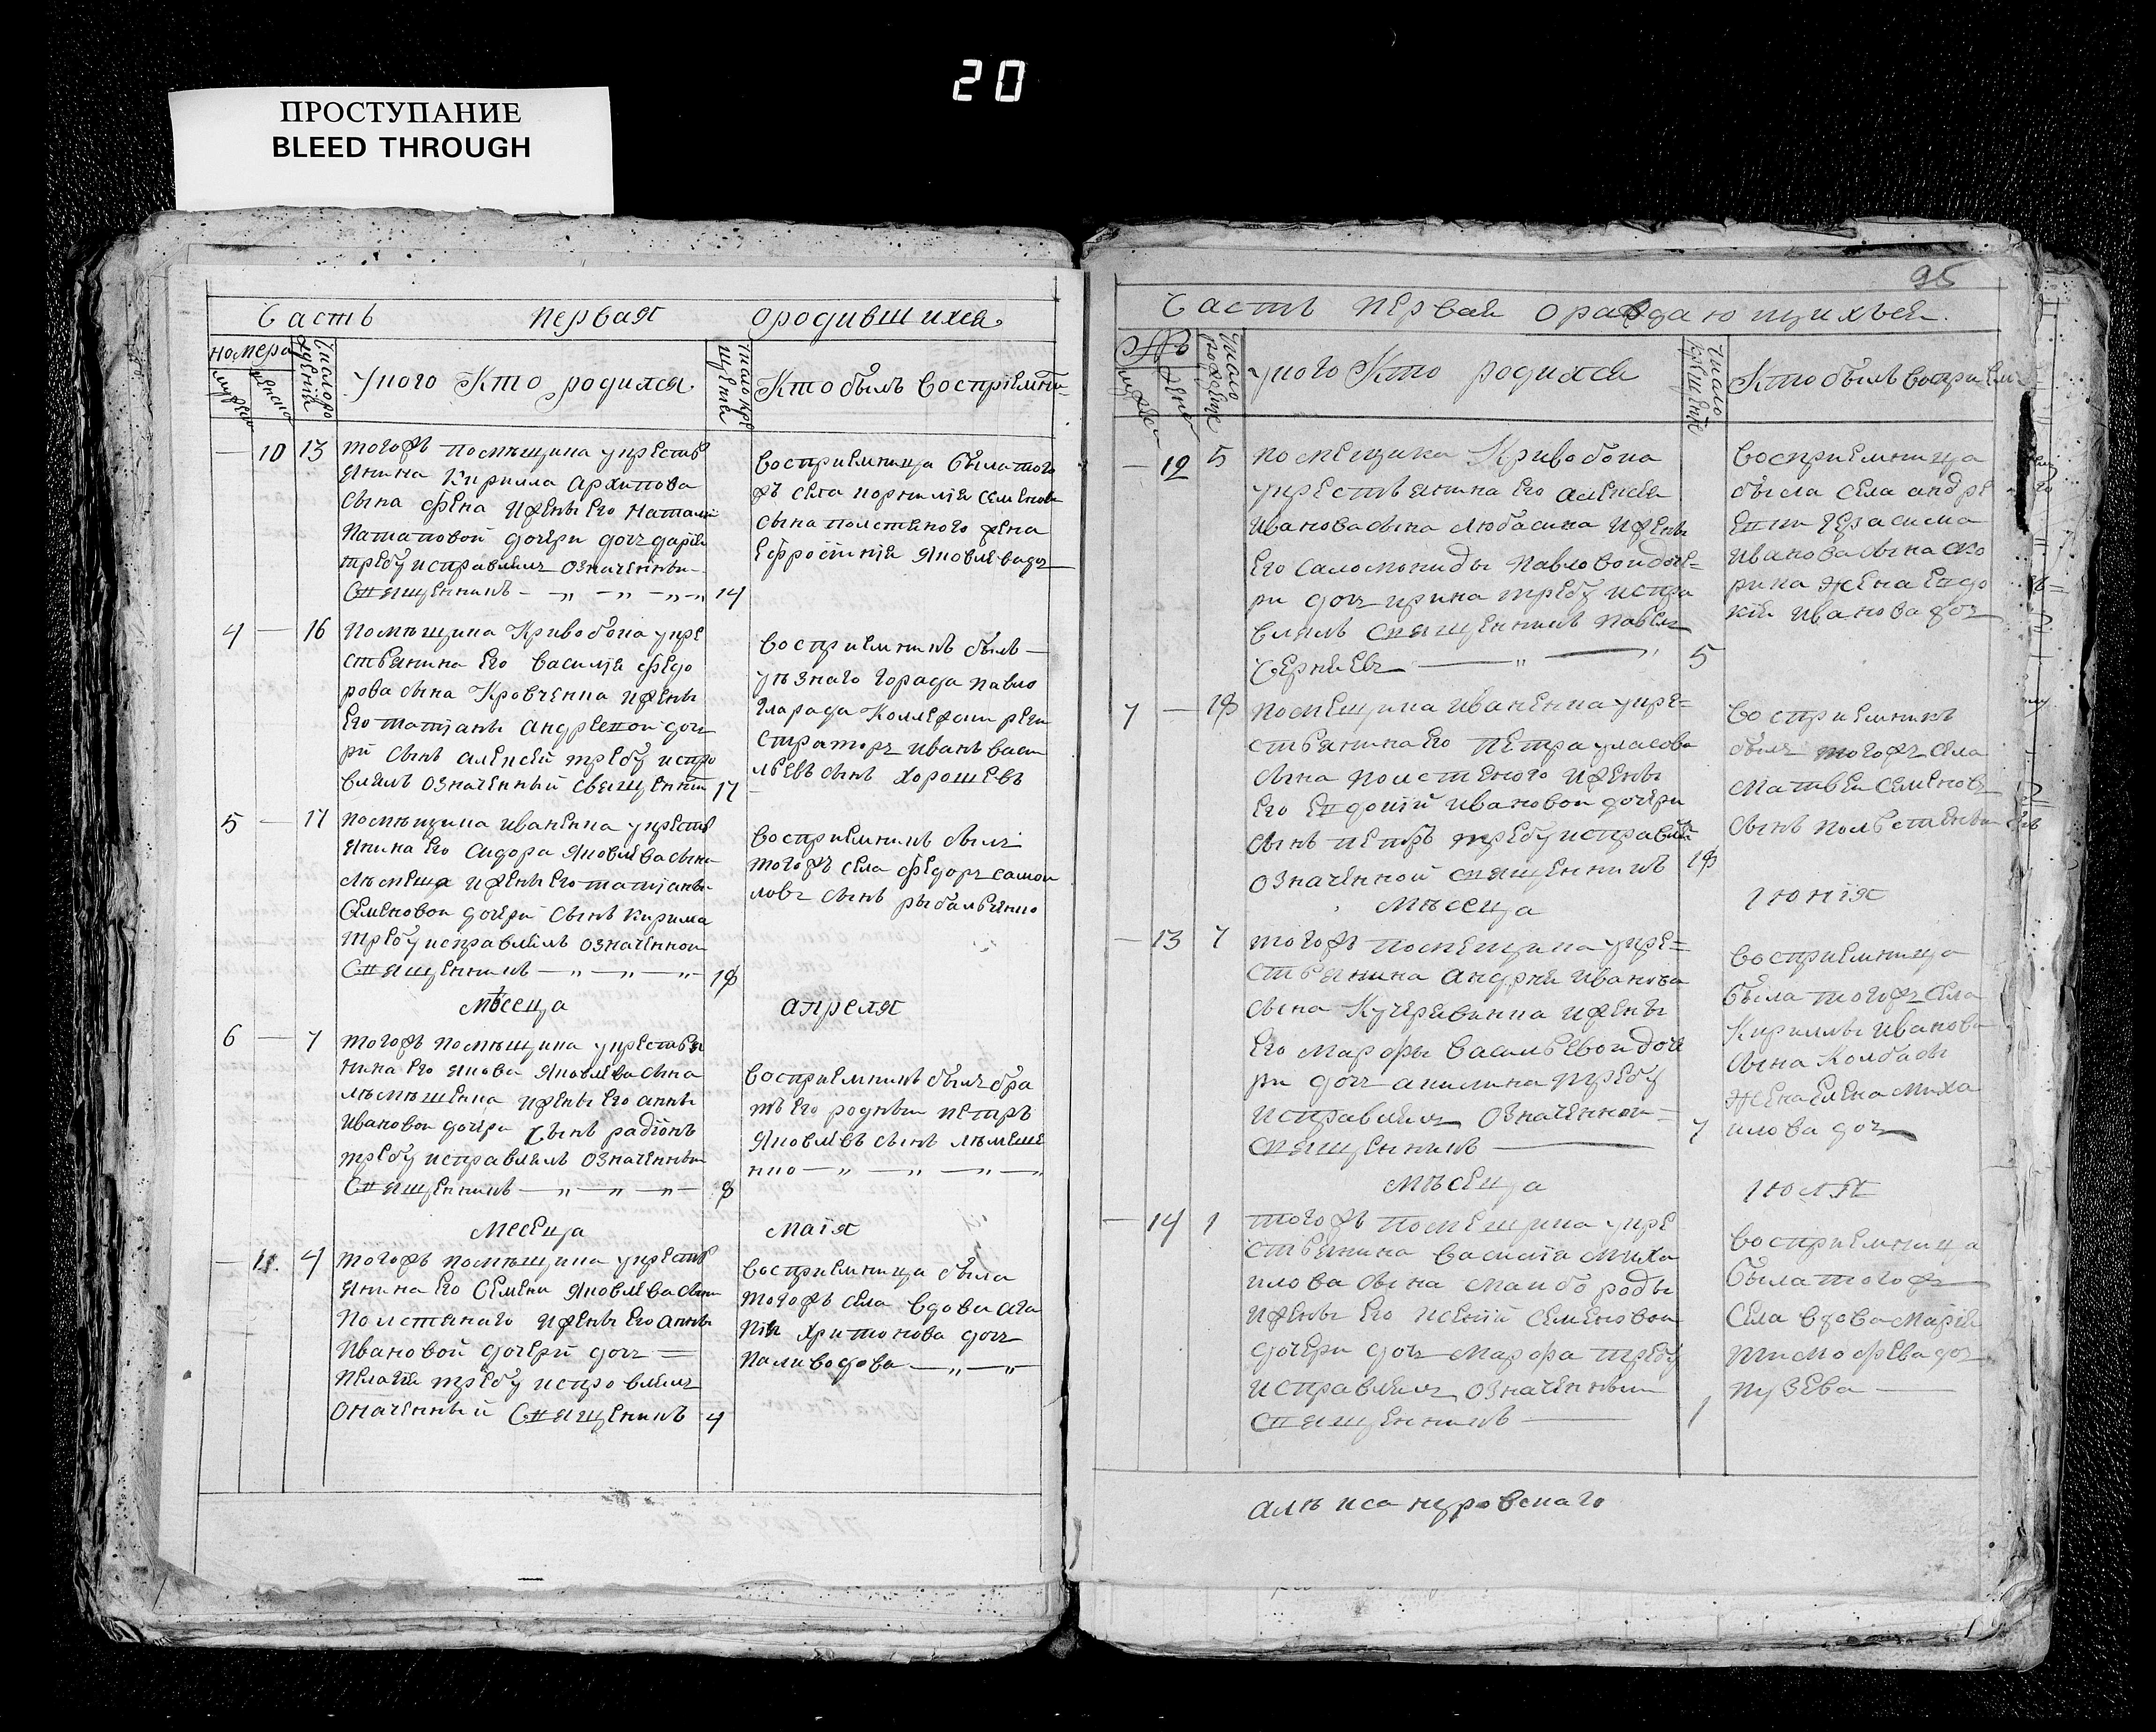 20
ПРОСТУПАНИЕ
BLEED THROUGH
Часть первая ородившихся
номера
Число рождения
У кого Кто родился
Число крещения
Кто былъ восприемни=
10 13
тогожъ помѣщика крестья
янина Кирилла Архипова
сына жена и жены его Наталіи
Патаповой дочери дочь дарія
требу исправлялъ означенный
Священникъ 14
восприемница была того
жъ села корнилія семенова
сына толстенкого жена
Ефросинія Яковлева доч
4 — 16
помѣщика Кривобока кре
стьянина его василія федо
рова сына Кровченка и жены
его татіаны андреевои доче
ри сынъ алексей требу испра
влялъ означенный священник 17
восприемникъ былъ —
уезнаго города павло
града Коллежски реги
страторъ иванъ васи
льевъ сынъ хорошевъ
5 — 17
помѣщика иваненка крестья
янина его сидора яковлева сына
лѣмеша и жены его татіаны
семеновои дочери сынъ кирила
требу исправлялъ означеннои
Священникъ — 18
восприемникъ былъ
тогожъ села федоръ самои
ловъ сынъ рыбальченко
мѣсеца апреля
6 — 7
тогожъ помѣщика крестья
нина его якова яковлева сына
лѣмѣшенка и жены его анны
ивановои дочери сынъ радіонъ
требу исправлялъ означенный
Священникъ — 8
восприемникъ былъ бра
тъ его родныи петръ
яковлевъ сынъ лѣмеше
нко —
месеца маія
— 11. 4
тогожъ помѣщика крестья
янина его семена яковлева сына
толстенкаго и жены его анны
ивановой дочери дочь =
пелагея требу исправлялъ
означенный Священикъ 4
восприемница была
тогожъ села вдова ага
пія харитонова дочь
паливодова —
95
Часть первая о раждающихъся.
№
Число рождение
у кого Кто родился
Число крещение
Кто былъ восприем
— 12 5
помещика Кривобока
крестьянина его алексея
иванова сына любасина и жены
его саломониды павловои доче=
ри дочь ирина требу испра
влялъ священникъ павелъ
Сергиевъ — 5
восприемница
была села андре
евки герасима
иванова сына ско
рика жена евдо
кія иванова доч
7 — 18
помещика иваненка кре=
стьянина его петра уласова
сына толстенкого и жены
его евдокіи ивановои дочери
сынъ петръ требу исправлял
означенной священникъ 18
восприемникъ
былъ тогожъ села
матвей семеновъ
сынъ
мѣсеца іюнія
— 13 7
тогожъ помещика кре=
стьянина андрея иванова
сына Кучерявенка и жены
его марфы васильевои доче
ри дочь акилина требу
исправлялъ означеннои =
священникъ — 7
восприемница
была тогожъ села
Кириллы иванова
сына Колбасы
жена елена миха
илова доч
мѣсеца іюля
— 14 1
тогожъ помещика кре
стьянина василія миха
илова сына маиброды
и жены его ксеніи семеновои
дочери дочь марфа требу
исправлялъ означенныи
священникъ — 1
восприемница
была тогожъ
села вдова марія
тимофеева доч
пузева —
алѣксандровскаго